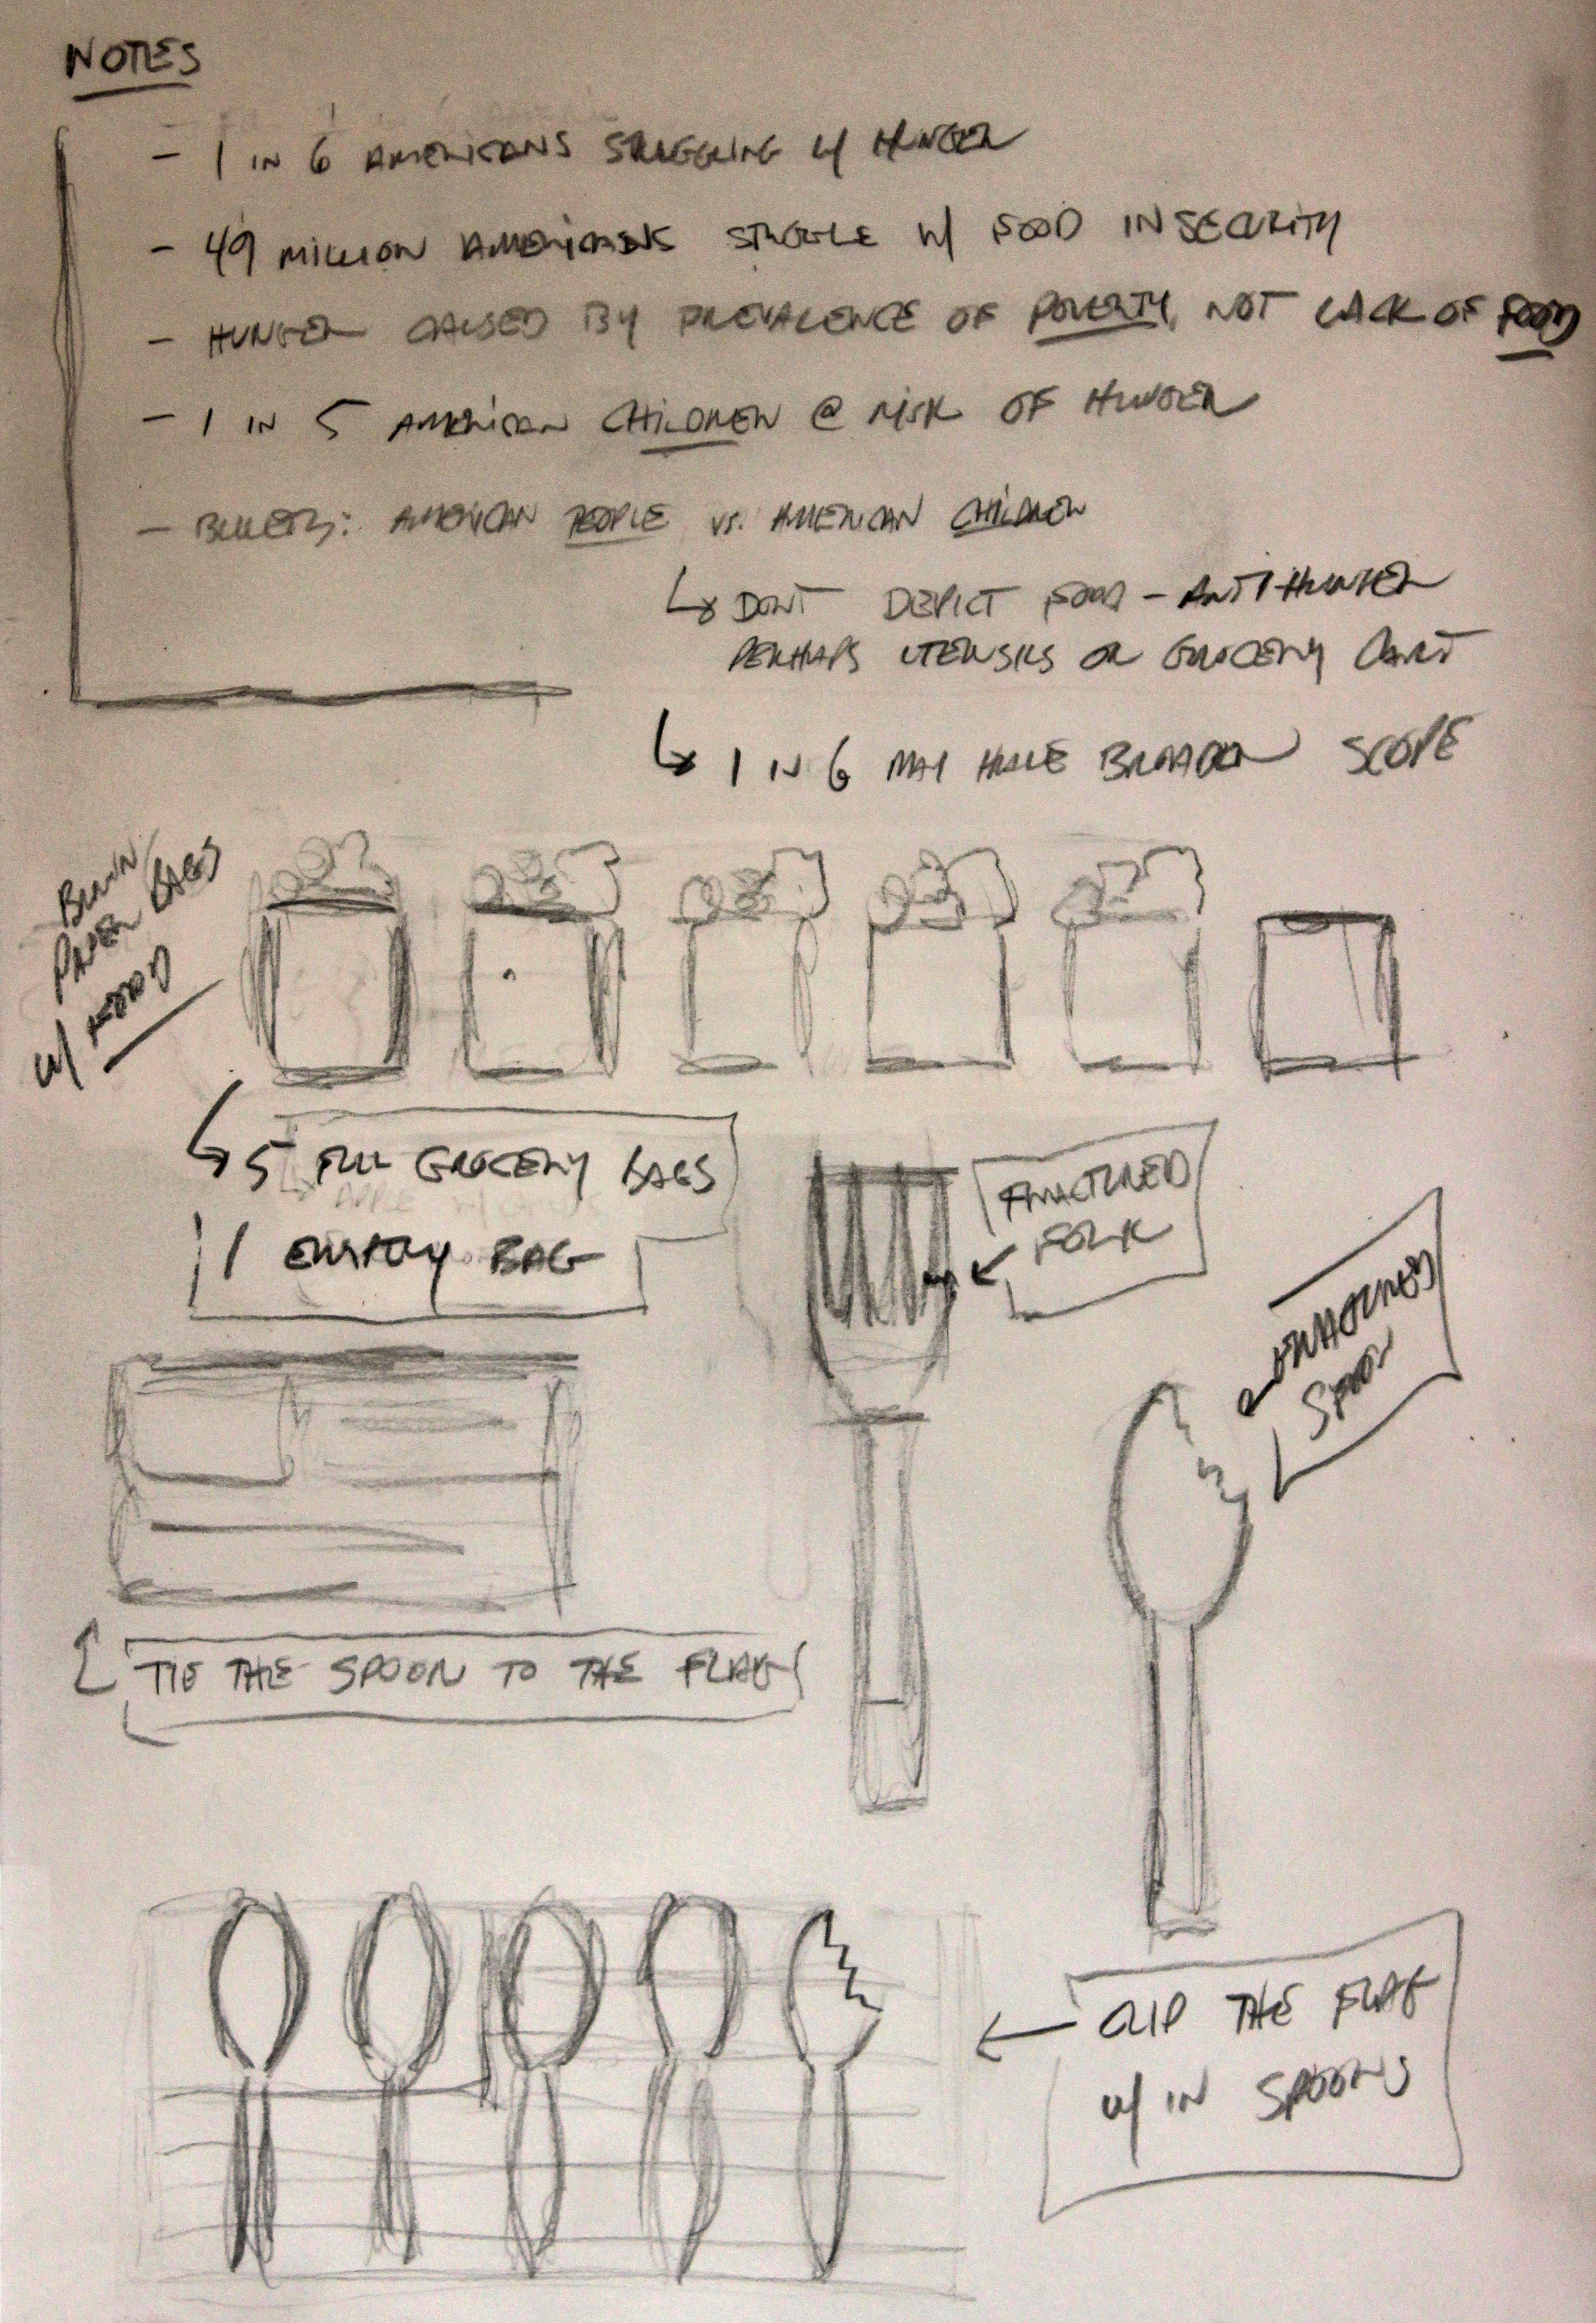 NOTES
- 1 IN 6 AMERICANS STRUGGLING W/ HUNGER
- 49 MILLION AMERICANS STRUGGLE W/ FOOD INSECURITY
- HUNGER CAUSED BY PREVALENCE OF POVERTY, NOT LACK OF FOOD
- 1 IN 5 AMERICAN CHILDREN @ RISK OF HUNGER
- : AMERICAN PEOPLE VS. AMERICAN CHILDREN
DONT DEPICT FOOD - ANTI-HUNGER
PERHAPS UTENSILS OR GROCERY CART
1 IN 6 MAY HAVE BROADER SCOPE
BROWN
PAPER BAGS
W/ FOOD
5 FULL GROCERY BAGS
1 EMPTY BAG
FRACTURED
FORK
FRACTURED
SPOON
TIE THE SPOON TO THE FLAG
CLIP THE FLAG
W/ IN SPOONS